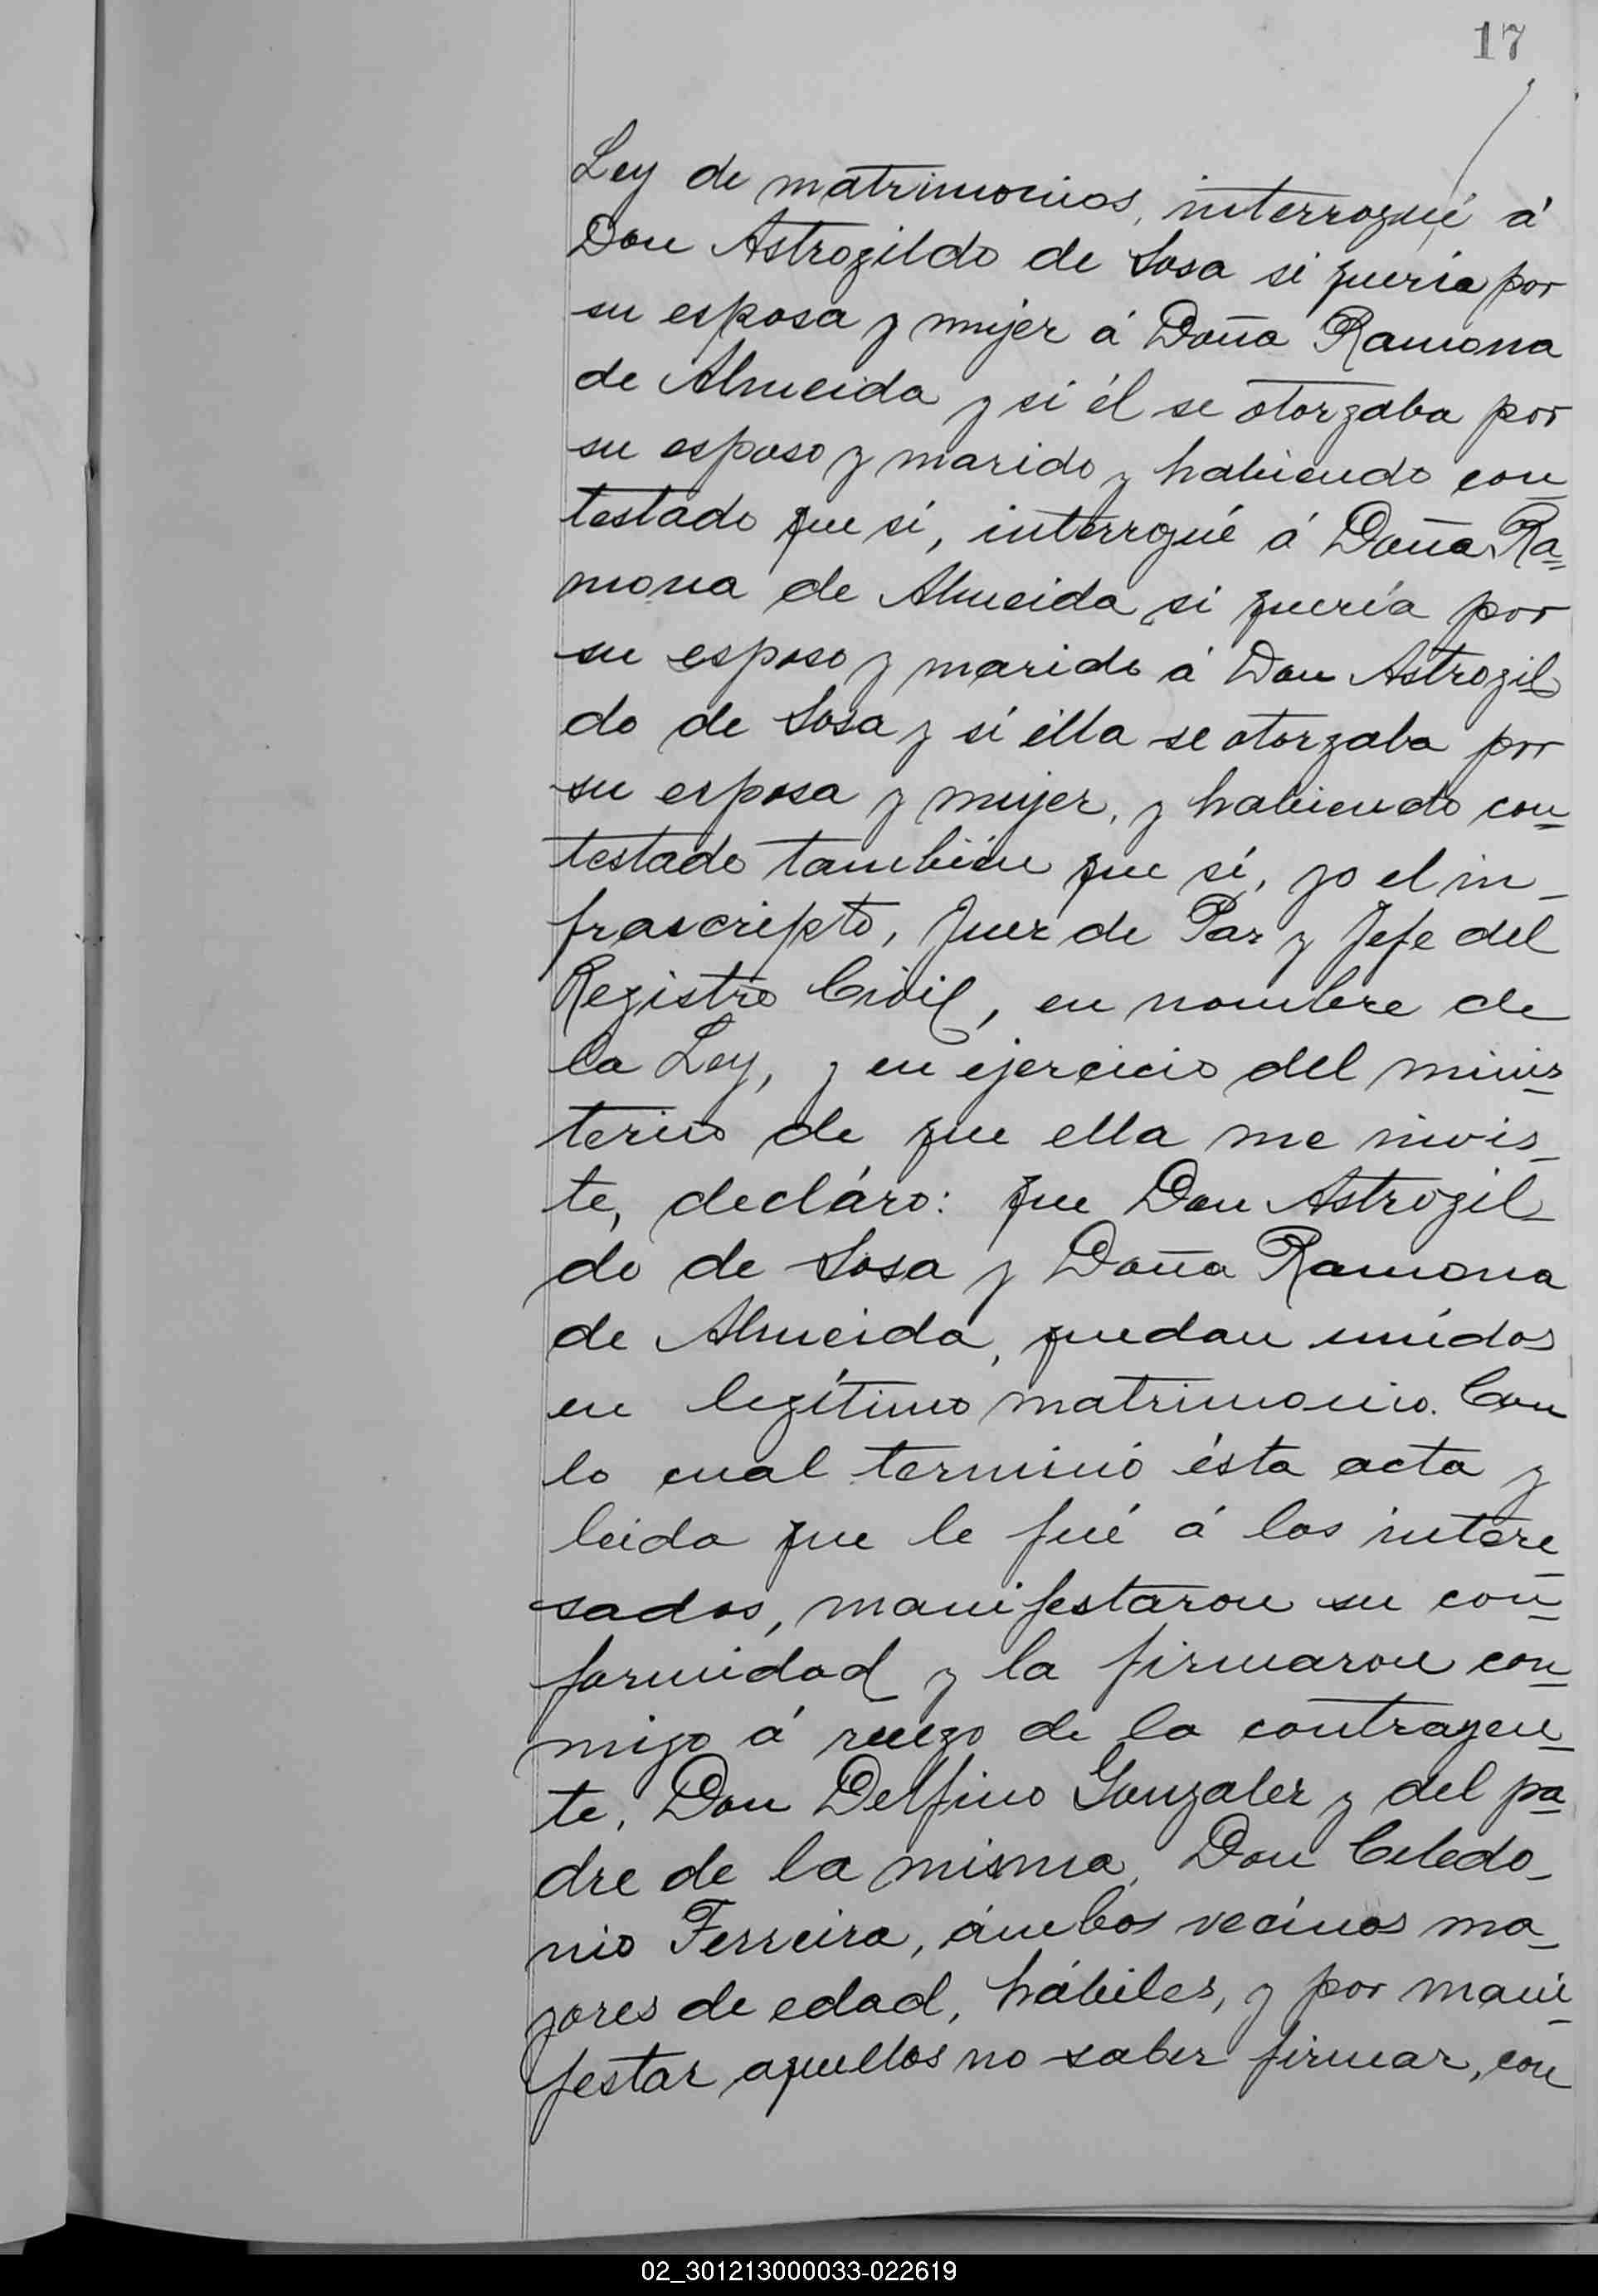 17
Ley de matrimonios, interrogué á
Don Astrogildo de Sosa si quería por
su esposa y mujer á Doña Ramona
de Almeida y si él se otorgaba por
su esposo y marido y habiendo con
testado que sí, interrogué á Doña Ra=
mona de Almeida si quería por
su esposo y marido á Don Astrogil
do de Sosa y si élla se otorgaba por
su esposa y mujer, y habiendo con=
testado también que sí, yo el in_
frascripto, Juez de Paz y Jefe del
Registro Civil, en nombre de
la Ley, y en ejercicio del minis=
terio de que ella me invis_
te, decláro: que Don Astrogil_
do de Sosa y Doña Ramona
de Almeida, quedan unídos
en legítimo matrimonio. Con
lo cual terminó ésta acta y
leida que le fué á los intere=
sados, manifestaron su con=
formidad y la firmaron con=
migo á ruego de la contrayen=
te, Don Delfino Gonzalez y del pa=
dre de la misma, Don Celedo_
nio Ferreira, ámbos vecinos ma_
yores de edad, hábiles, y por mani=
festar aquellos no saber firmar, con
02_301213000033-022619